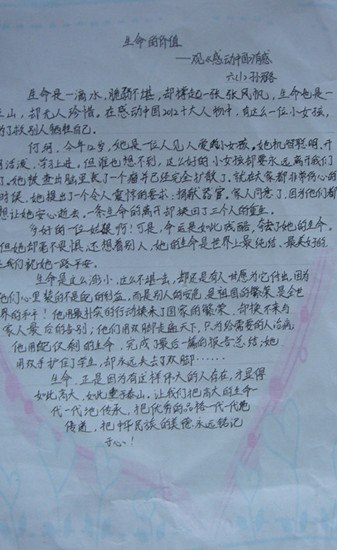 生命的价值
——观《感动中国》有感
六(1) 孙璐
生命是一滴水,脆弱不堪,却撑起一张张风帆,生命也是一
山,却无人珍惜。在感动中国2012十大人物中,有这么一位小女孩,
为了救别人牺牲自己。
何玥,今年12岁,她是一位人见人爱的小女孩。她机智聪明,开
活泼,学习上进。但谁也想不到,这么好的小女孩却要永远离开我们
了。她被查出脑里长了一个瘤并已经完全扩散了。就在大家都非常伤心的
时候,她提出了一个令人震惊的要求:捐献器官。家人同意了,因为他们都
想让她安心逝去。一条生命的离开却换回了三个人的重生。
多好的一位姑娘啊!可是,命运是如此残酷,夺去了她的生命。
但她却毫不畏惧,还想着别人,她的生命是世界上最纯洁、最美好的
让我们祝她一路平安。
生命是这么渺小,这么不堪一击,却还是有人甘愿为它付出,因为
他们心里装的不是自己的利益,而是别人的安危,是祖国的繁荣,是全世
界的和平!他用最朴实的行动换来了国家的繁荣,却换不来与
家人最后的告别;他们用双脚走遍天下,只为给需要的人治病;
他用自己仅剩的生命,完成了最后一篇的报告总结;她
用双手护住了学生,却永远失去了双脚……
生命,正是因为有这样伟大的人存在,才显得
如此高大,如此重于泰山。让我们把高大的生命
一代一代地传承,把优秀的品格一代一代地
传递,把中华民族的美德永远铭记
于心!